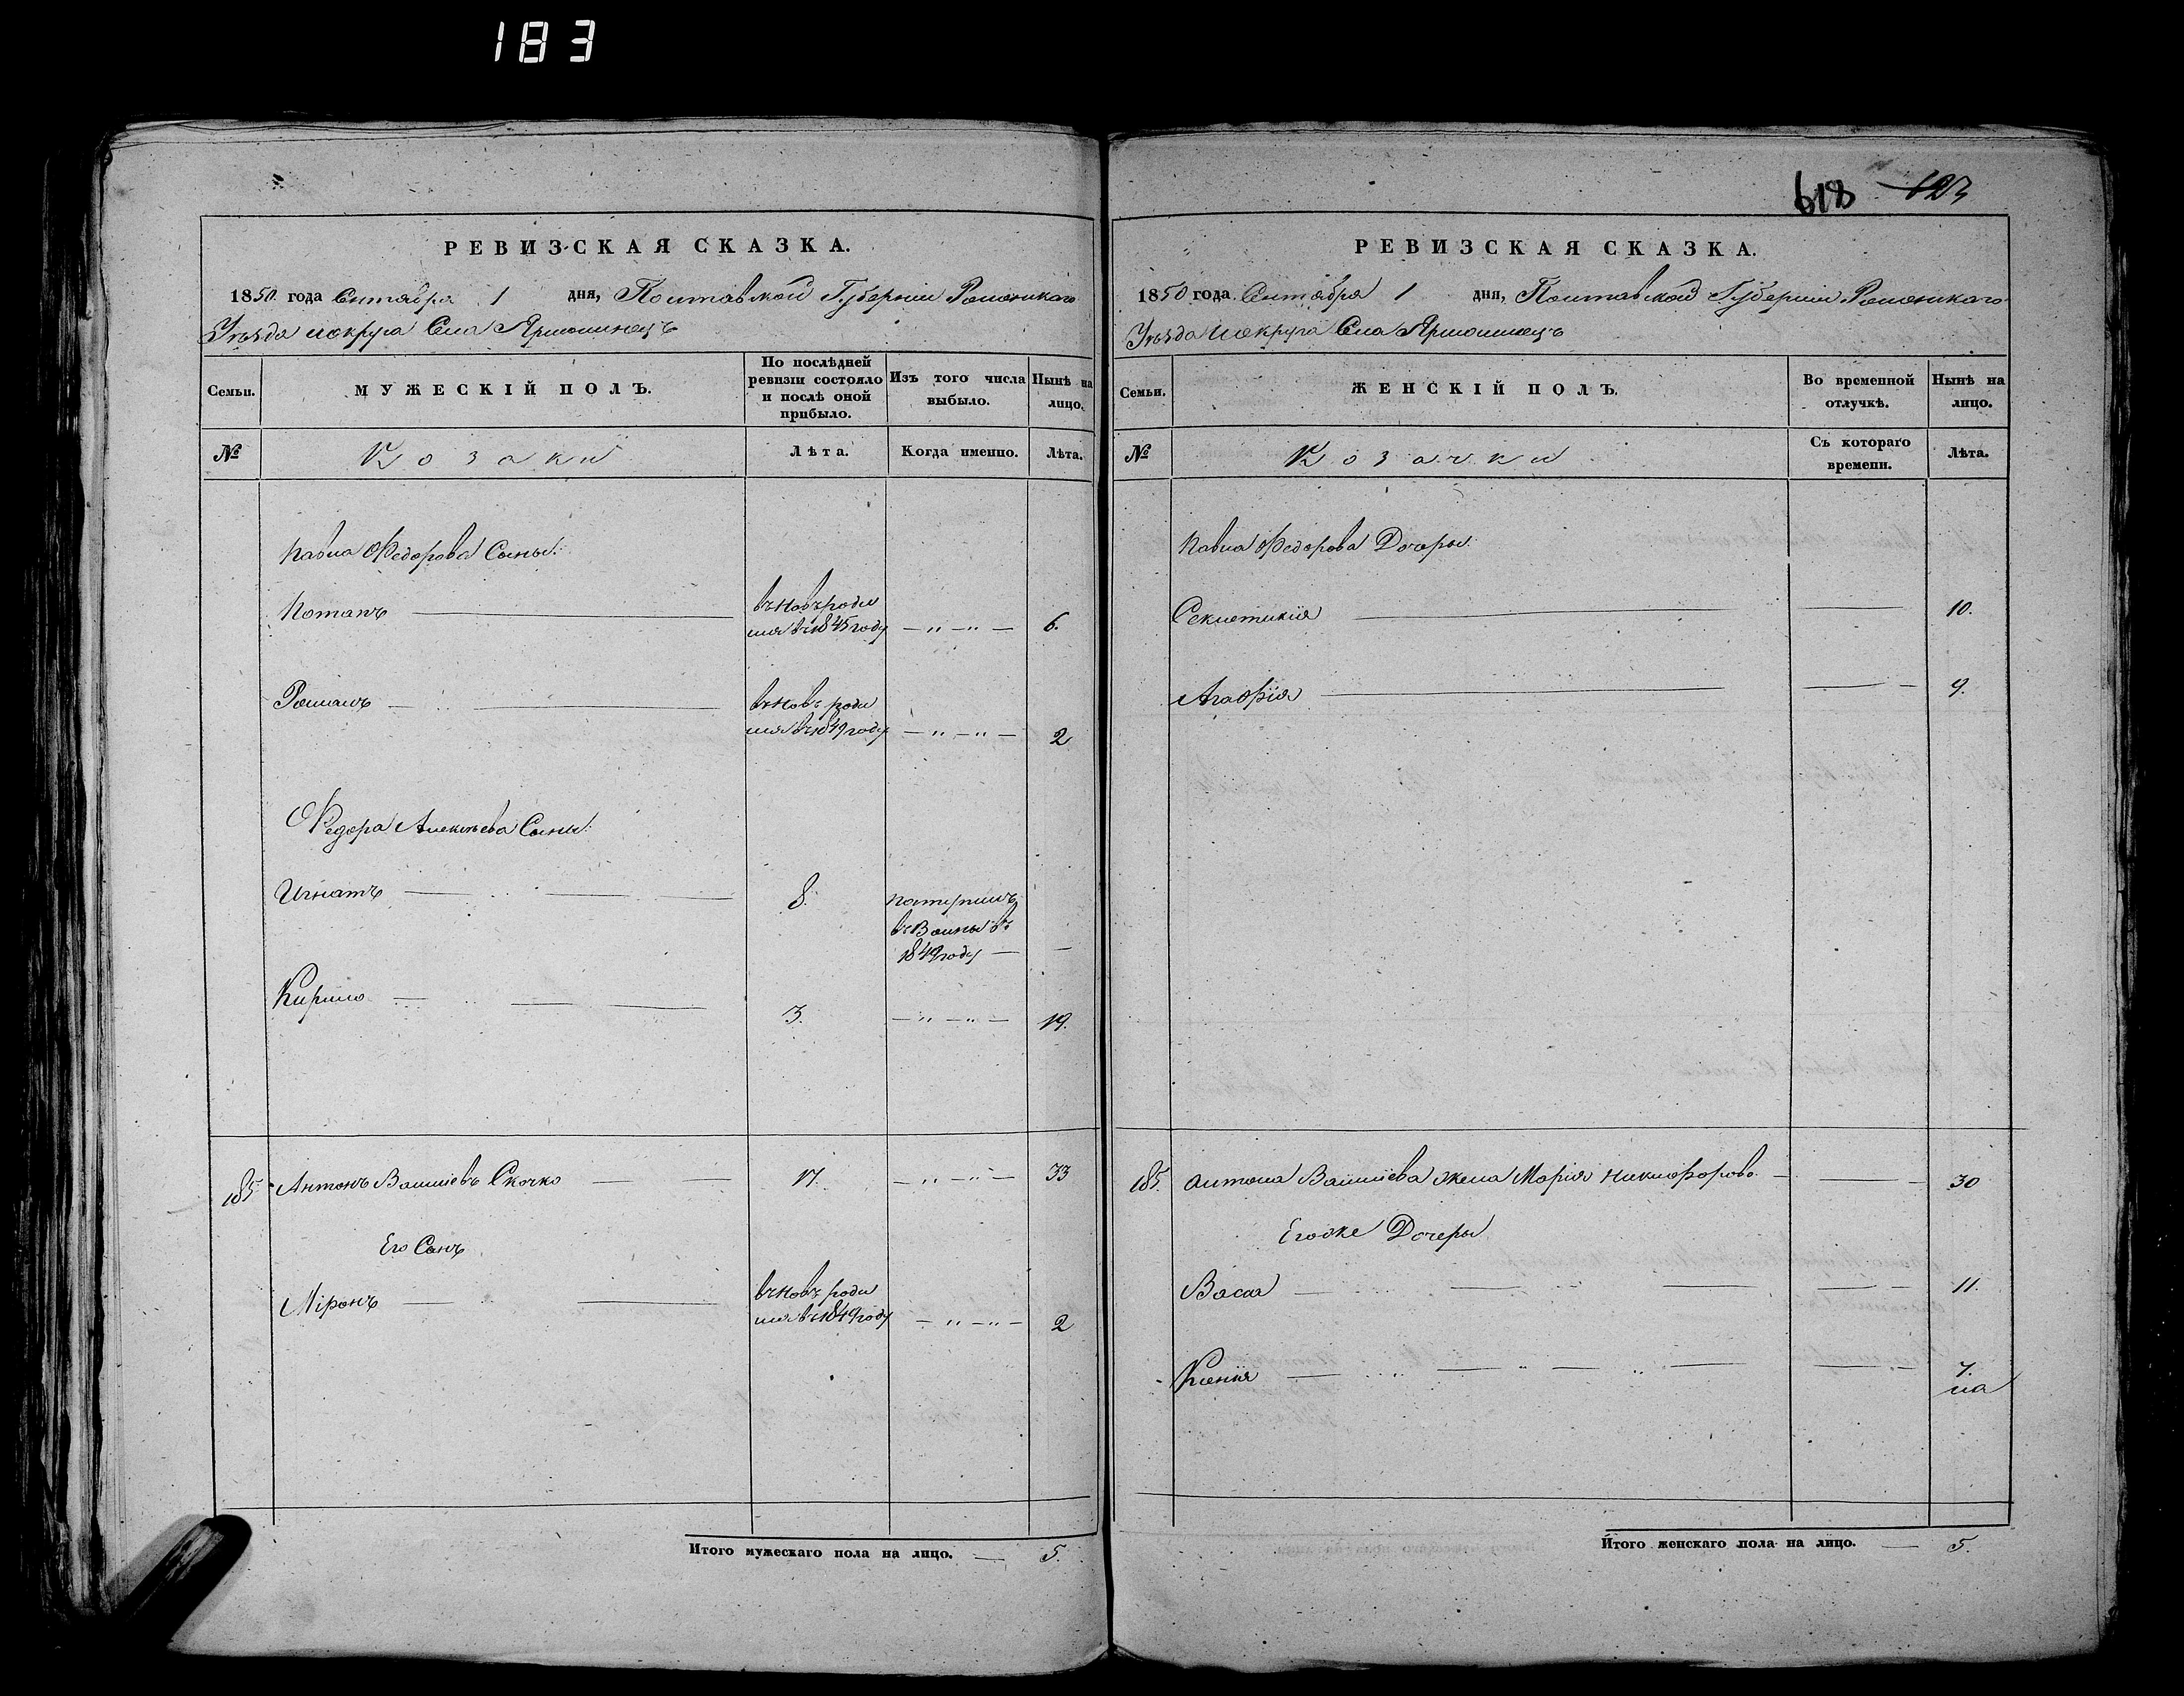 183
РЕВИЗСКАЯ СКАЗКА.
1850 года Сентября 1 дня, Полтавской Губерніи Роменскаго
Уѣзда и округа Села Ярмолинецъ
Семьи.
МУЖЕСКІЙ ПОЛЪ.
По послѣдней ревизіи состояло и послѣ оной прибыло.
Изъ того числа выбыло.
Нынѣ на лицо.
№
Козаки
Лѣта.
Когда именно.
Лѣта.
Павла Федорова Сыны:
Потапъ вновъ роди
лся въ 1845 году — „ — „ — 6.
Романъ вновъ роди
лся въ 1849 году — „ — „ — 2
Федора Алексѣева Сыны:
Игнатъ 8.
въ 
1849 году — —
Кирило 3. — „ — „ — 19.
185 Антонъ Василіевъ Скочко 17. — „ — „ — 33
Его Сынъ
Міронъ вновъ роди
лся въ 1849 году — „ — „ — 2
Итого мужескаго пола на лицо. — 5.
618 623
РЕВИЗСКАЯ СКАЗКА.
1850 года Сентября 1 дня, Полтавской Губерніи Роменскаго
Уѣзда и округа Села Ярмолинецъ
Семьи.
ЖЕНСКІЙ ПОЛЪ.
Во временной отлучкѣ.
Нынѣ на лицо.
№
Козачки
Съ котораго времени.
Лѣта.
Павла Федорова Дочеры:
Секлетикія — 10.
Агафія — 9.
185. Антона Василіева жена Марія Никифорова — 30
Егоже Дочеры
Васса — 11.
Ксенія — 7.
ла
Итого женскаго пола на лицо. — 5.